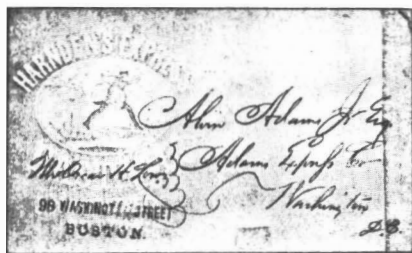 HARNDEN'S EXPRESS
Alvin Adams Jr Esq
Adams Express Co
Washington
D.C.
98 WASHINGTON STREET
BOSTON.